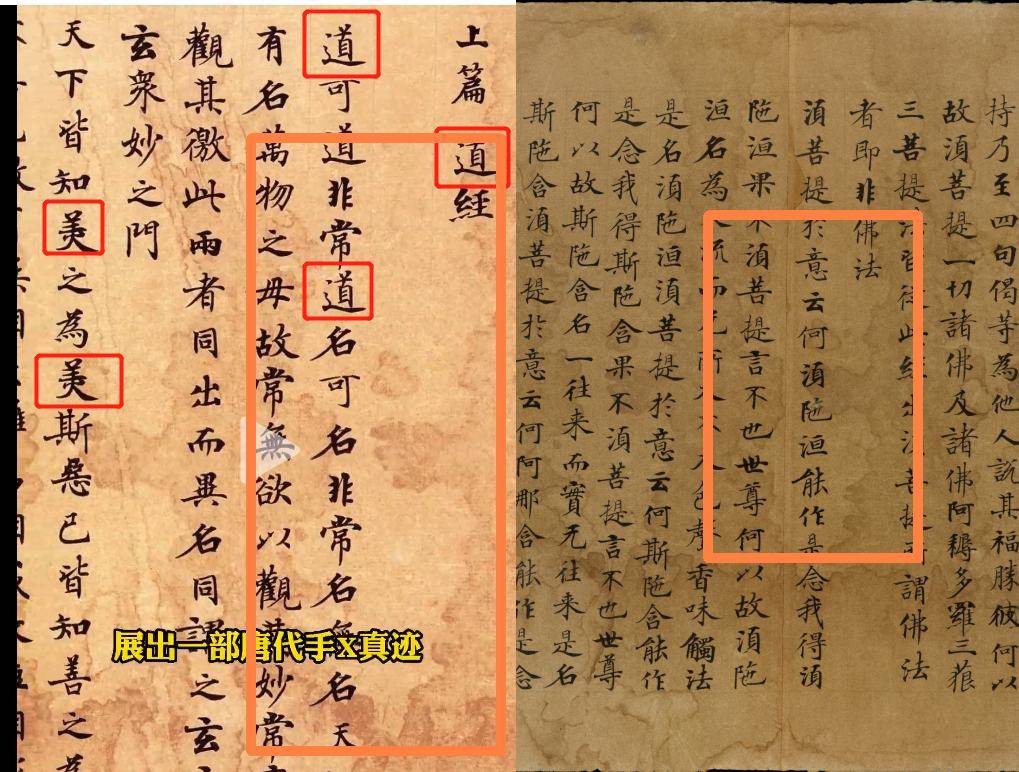 上篇道經
道可道非常道名可名非常名無名天
有名萬物之母故常無欲以觀其妙常
觀其徼此兩者同出而異名同謂之玄
玄衆妙之門
天下皆知美之為美斯惡已皆知善之為
展出一部唐代手X真迹
持乃至四句偈等為他人說其福勝彼何以
故湏菩提一切諸佛及諸佛阿耨多羅三藐
三菩提法皆從此經出湏菩提所謂佛法
者即非佛法
湏菩提扵意云何湏陁洹能作是念我得湏
陁洹果不湏菩提言不也世尊何以故湏陁
洹名為入流而无所入不入色聲香味觸法
是名湏陁洹湏菩提扵意云何斯陁含能作
是念我得斯陁含果不湏菩提言不也世尊
何以故斯陁含名一往来而實无往来是名
斯陁含湏菩提扵意云何阿那含能作是念